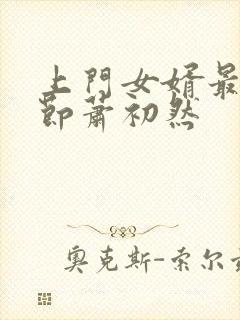 上門女婿最
節蕭初然
奧克斯-索尔